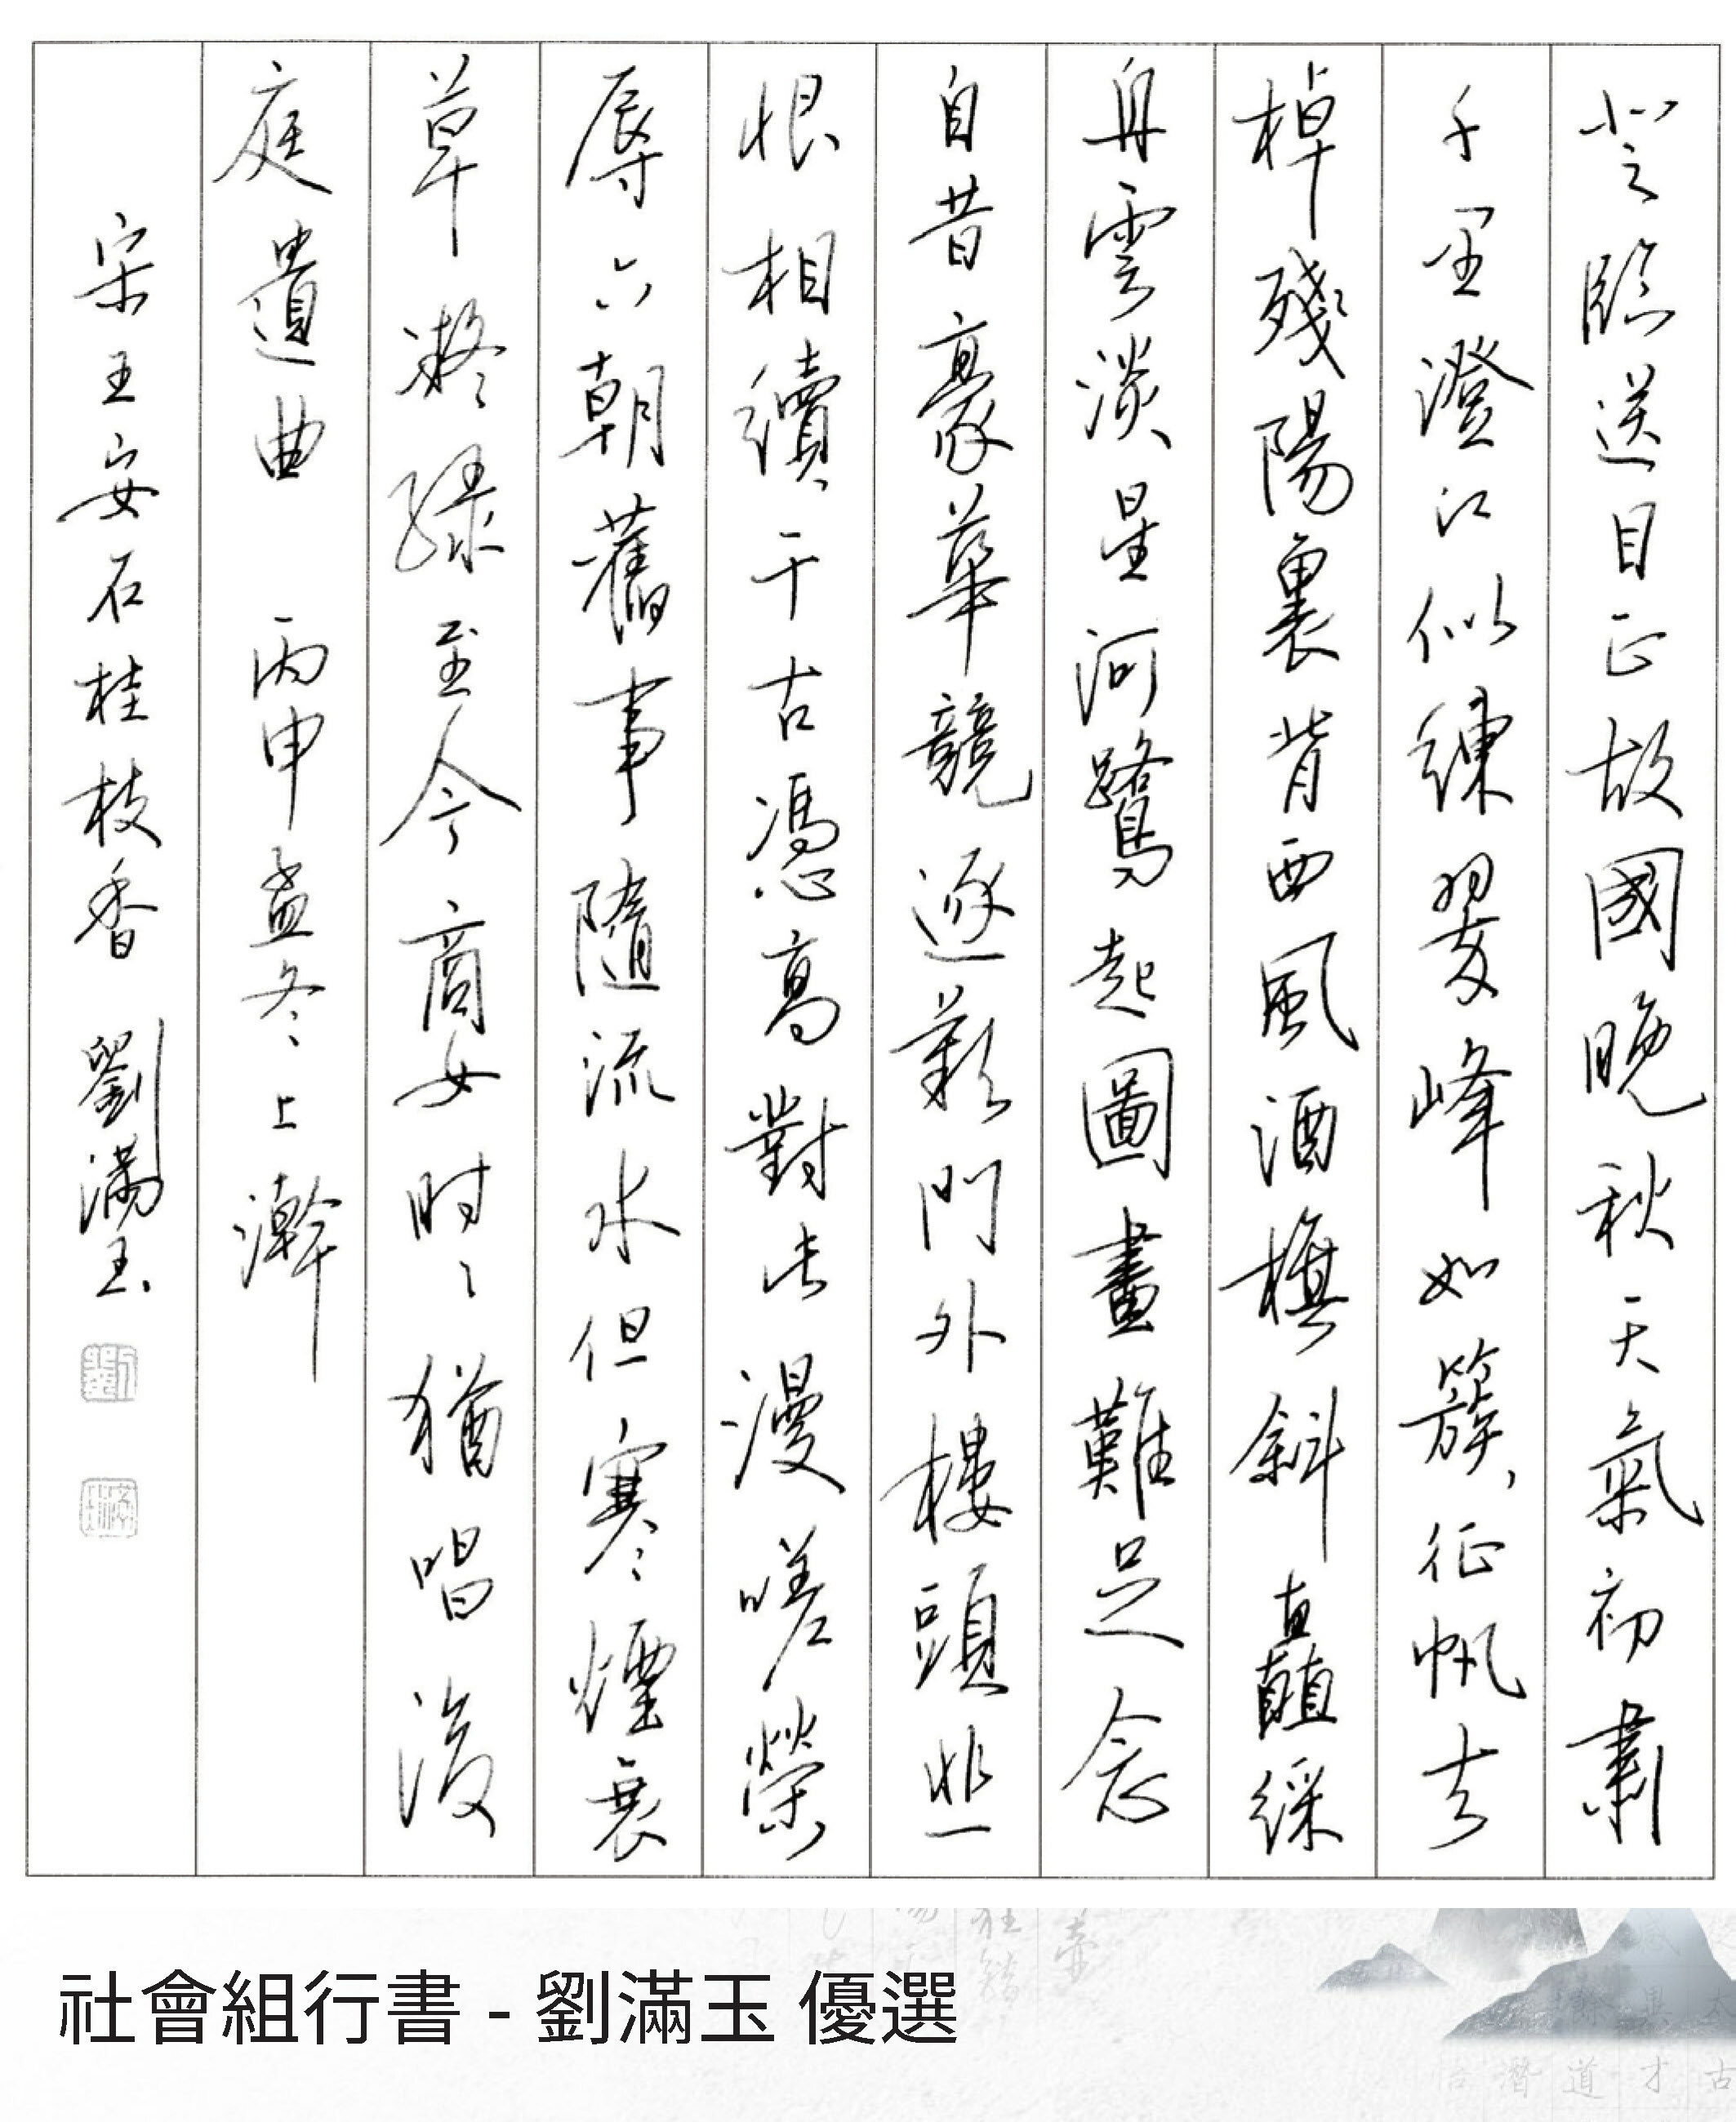 登臨送目正故國晚秋天氣初肅
千里澄江似練翠峰如簇征帆去
棹殘陽裏背西風酒旗斜矗綵
舟雲淡星河鷺起圖畫難足念
自昔豪華競逐歎門外樓頭悲
恨相續千古憑高對此漫嗟榮
辱六朝舊事隨流水但寒煙衰
草凝綠至今商女時々猶唱後
庭遺曲 丙申孟冬上澣
宋王安石桂枝香 劉滿玉
社會組行書 - 劉滿玉 優選